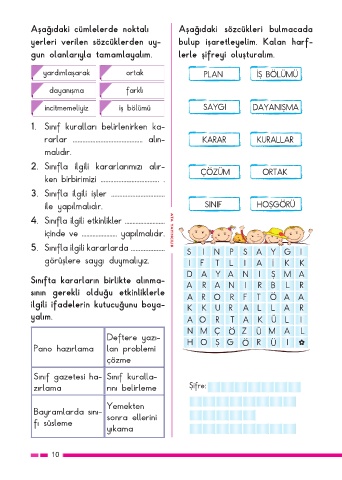 Aşağıdaki cümlelerde noktalı
yerleri verilen sözcüklerden uy-
gun olanlarıyla tamamlayalım.
yardımlaşarak ortak
dayanışma farklı
incitmemeliyiz iş bölümü
1. Sınıf kuralları belirlenirken ka-
rarlar ........................................ alın-
malıdır.
2. Sınıfla ilgili kararlarımızı alır-
ken birbirimizi .................................. .
3. Sınıfla ilgili işler ..............................
ile yapılmalıdır.
4. Sınıfla ilgili etkinlikler .......................
içinde ve .................... yapılmalıdır.
5. Sınıfla ilgili kararlarda ....................
görüşlere saygı duymalıyız.
Sınıfta kararların birlikte alınma-
sının gerekli olduğu etkinliklerle
ilgili ifadelerin kutucuğunu boya-
yalım.
Pano hazırlama
Deftere yazı-
lan problemi
çözme
Sınıf gazetesi ha-
zırlama
Sınıf kuralla-
rını belirleme
Bayramlarda sını-
fı süsleme
Yemekten
sonra ellerini
yıkama
10
Aşağıdaki sözcükleri bulmacada
bulup işaretleyelim. Kalan harf-
lerle şifreyi oluşturalım.
PLAN İŞ BÖLÜMÜ
SAYGI DAYANIŞMA
KARAR KURALLAR
ÇÖZÜM ORTAK
SINIF HOŞGÖRÜ
S I N P S A Y G I
I F T L I A İ K K
D A Y A N I Ş M A
A R A N I R B L R
A R O R F T Ö A A
K K U R A L L A R
A O R T A K Ü L I
N M Ç Ö Z Ü M A L
H O Ş G Ö R Ü I ✿
Şifre: